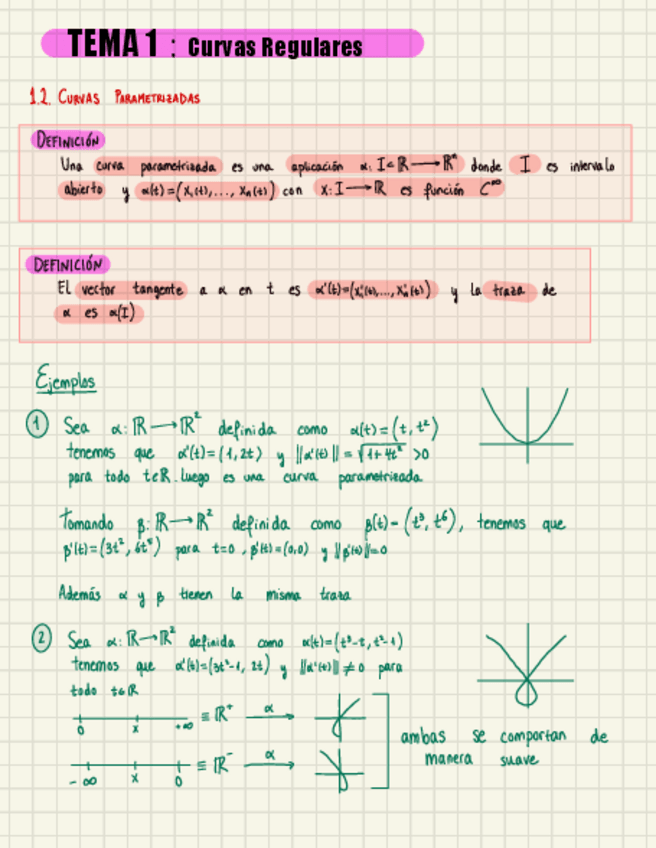 TEMA 1 : Curvas Regulares
1.2. CURVAS PARAMETRIZADAS
DEFINICIÓN
Una curva parametrizada es una aplicación α: I⊂ℝ⟶ℝⁿ donde I es intervalo
abierto y α(t)=(x₁(t),..., xₙ(t)) con x: I⟶ℝ es función C^∞
DEFINICIÓN
El vector tangente a α en t es α'(t)=(x₁'(t),..., xₙ'(t)) y la traza de
α es α(I)
Ejemplos
① Sea α: ℝ⟶ℝ² definida como α(t)=(t, t²)
tenemos que α'(t)=(1,2t) y ||α'(t)||=√1+4t² >0
para todo t∈ℝ. luego es una curva parametrizada
Tomando β: ℝ⟶ℝ² definida como β(t)=(t³, t⁶), tenemos que
β'(t)=(3t², 6t⁵) para t=0, β'(t)=(0,0) y ||β'(t)||=0
Además α y β tienen la misma traza
② Sea α: ℝ⟶ℝ² definida como α(t)=(t³-t, t²-1)
tenemos que α'(t)=(3t²-1, 2t) y ||α'(t)||≠0 para
todo t∈ℝ
0 x +∞ ≡ ℝ⁺ α
-∞ x 0 ≡ ℝ⁻ α
ambas se comportan de
manera suave